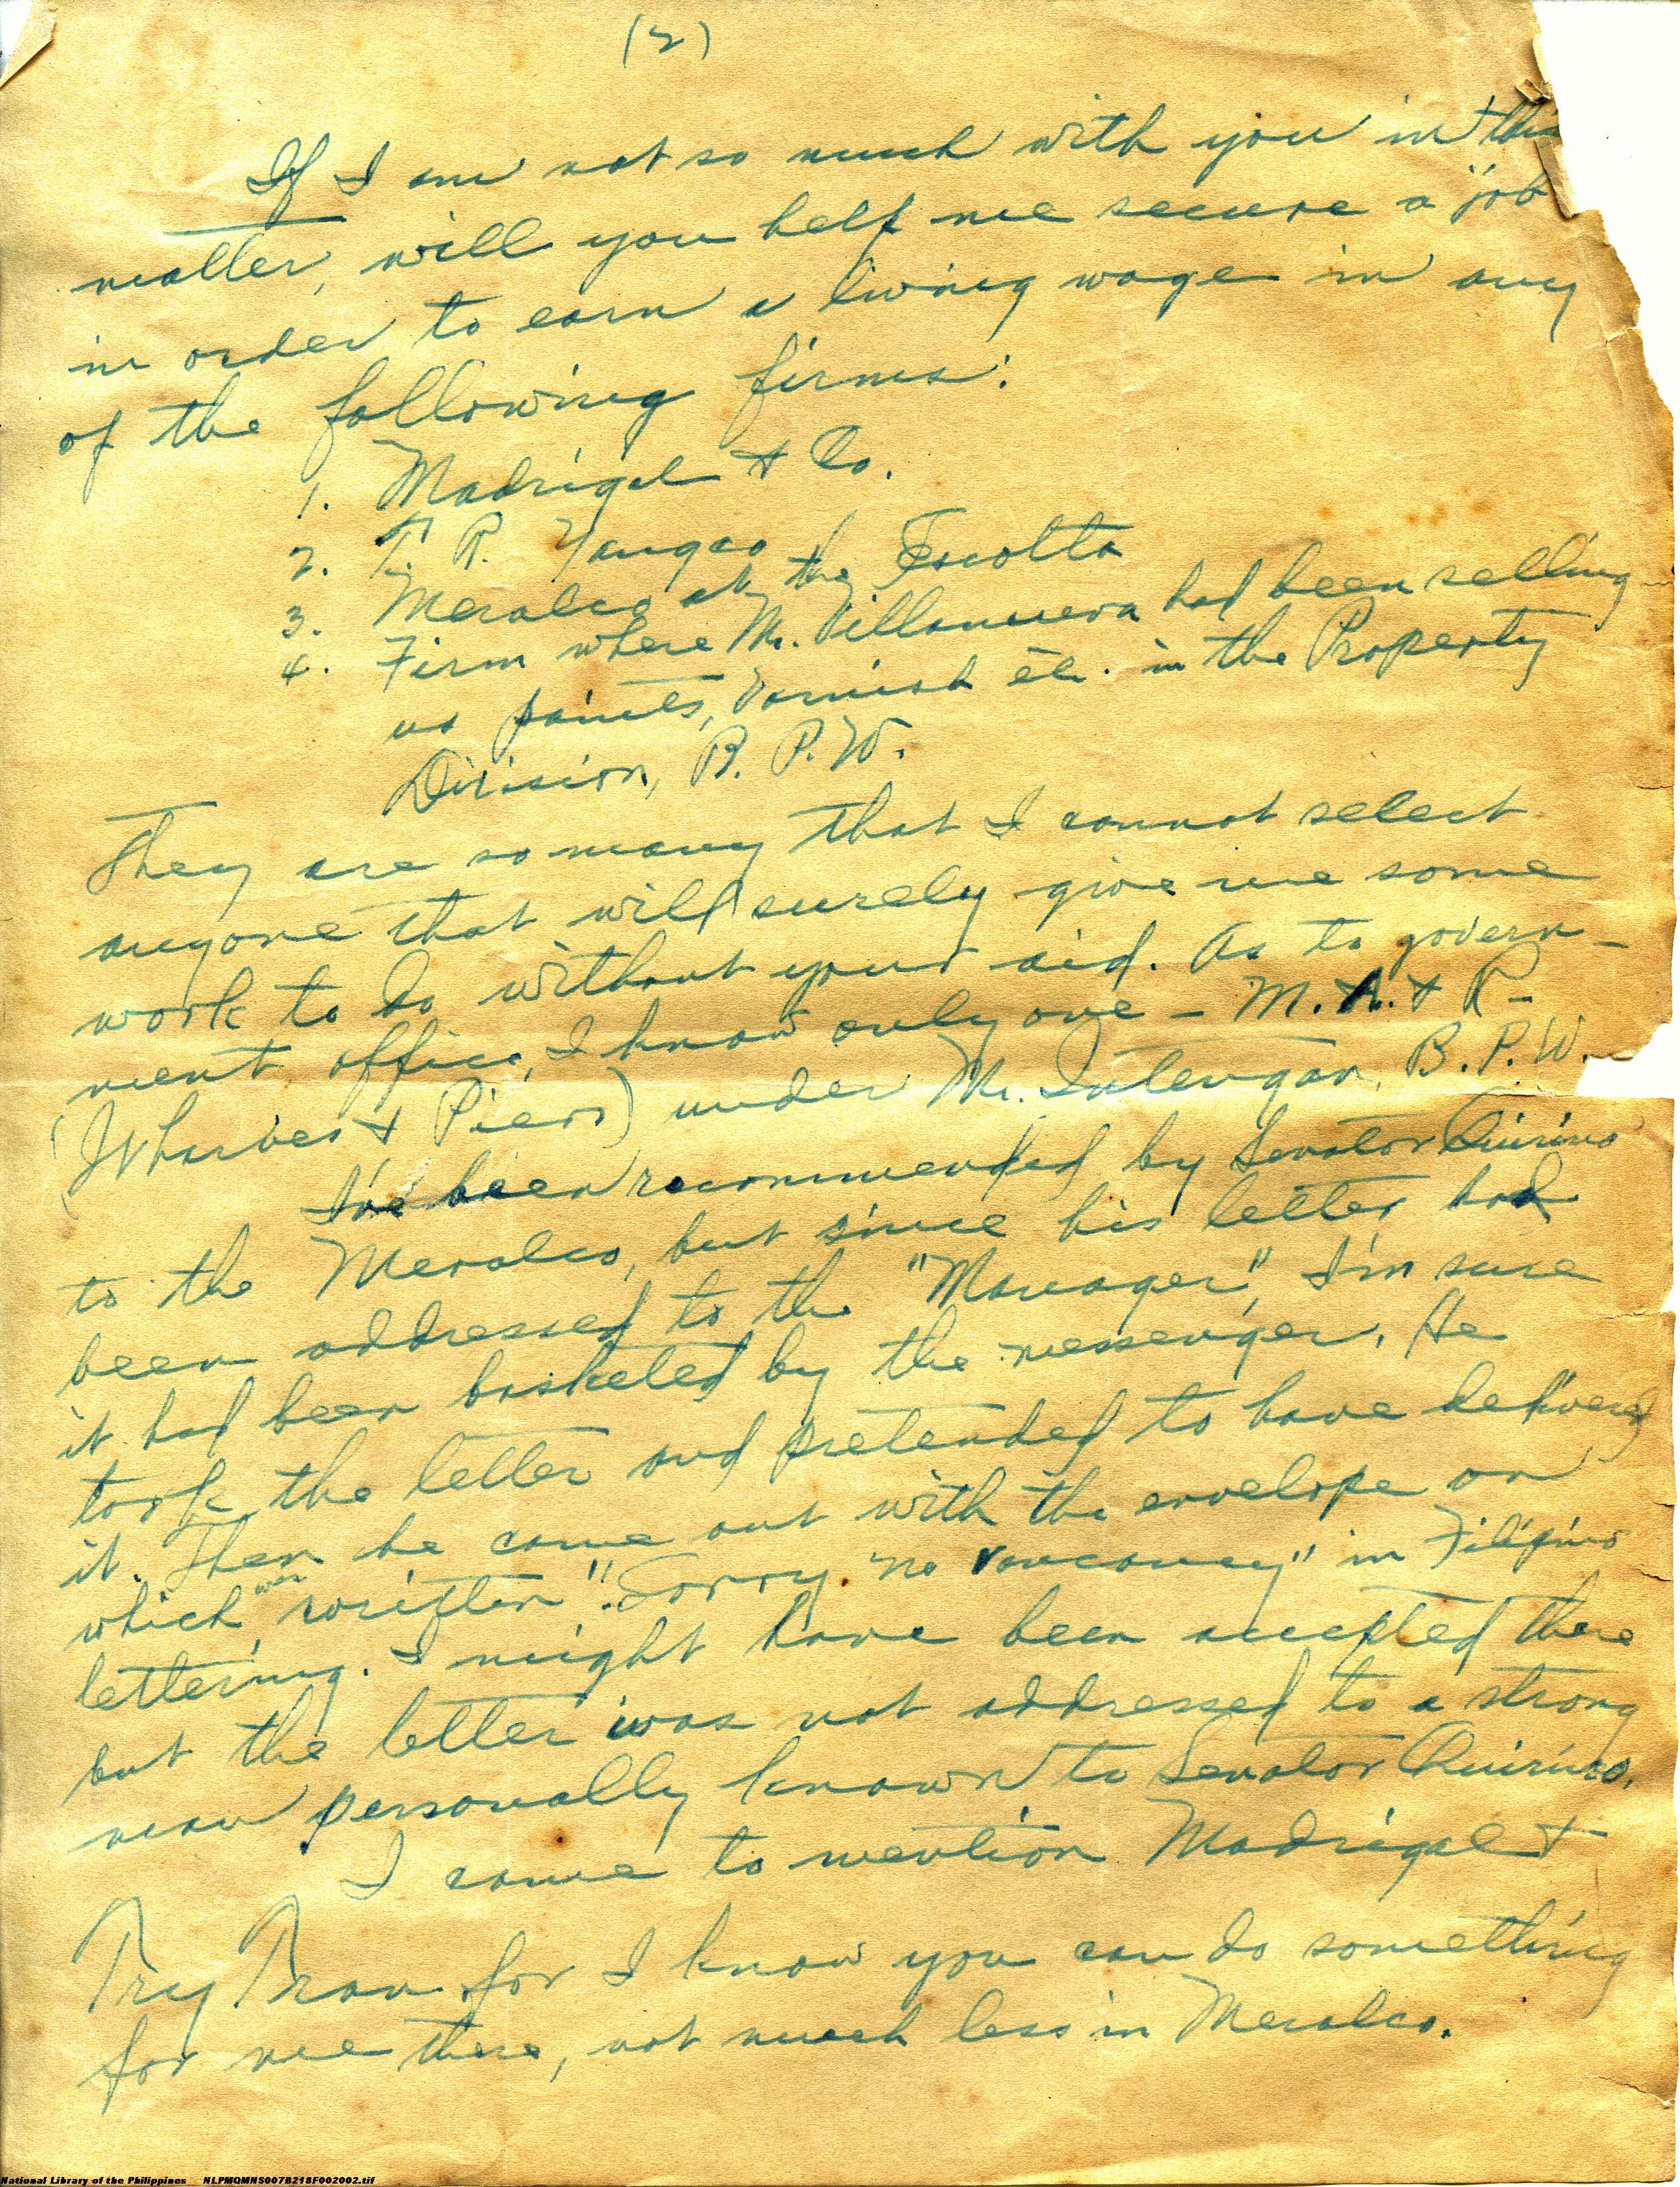 (2)
If I am not so much with you in this
matter, will you help me secure a job
in order to earn a living wage in any
of the following firms:
1. Madrigal & Co.
2. T. R. Yangco
3. Meralco at the Escolta
4. Firm where Mr. Villanueva had been selling
us paints, Varnish etc. in the Property
Division, B. P. W.
They are so many that I cannot select
anyone that will surely give me some
work to do without your aid. As to govern-
ment office, I know only one - M. R. & R -
(Wharves & Piers) under Mr. Intengan, B. P. W.
I've been recommended by Senator Quirino
to the Meralco, but since his letter had
been addressed to the "Manager", I'm sure
it had been basketed by the messenger. He
took the letter and pretended to have delivered
it. Then he came out with the envelope on
which was written "Sorry no vancancy" in Filipino
lettering. I might have been accepted there
but the letter was not addressed to a strong
man personally known to Senator Quirino.
I came to mention Madrigal &
Try Tran for I know you can do something
for me there, not much less in Meralco.
National Library of the Philippines NLPMQMNS007B218F002002.tif